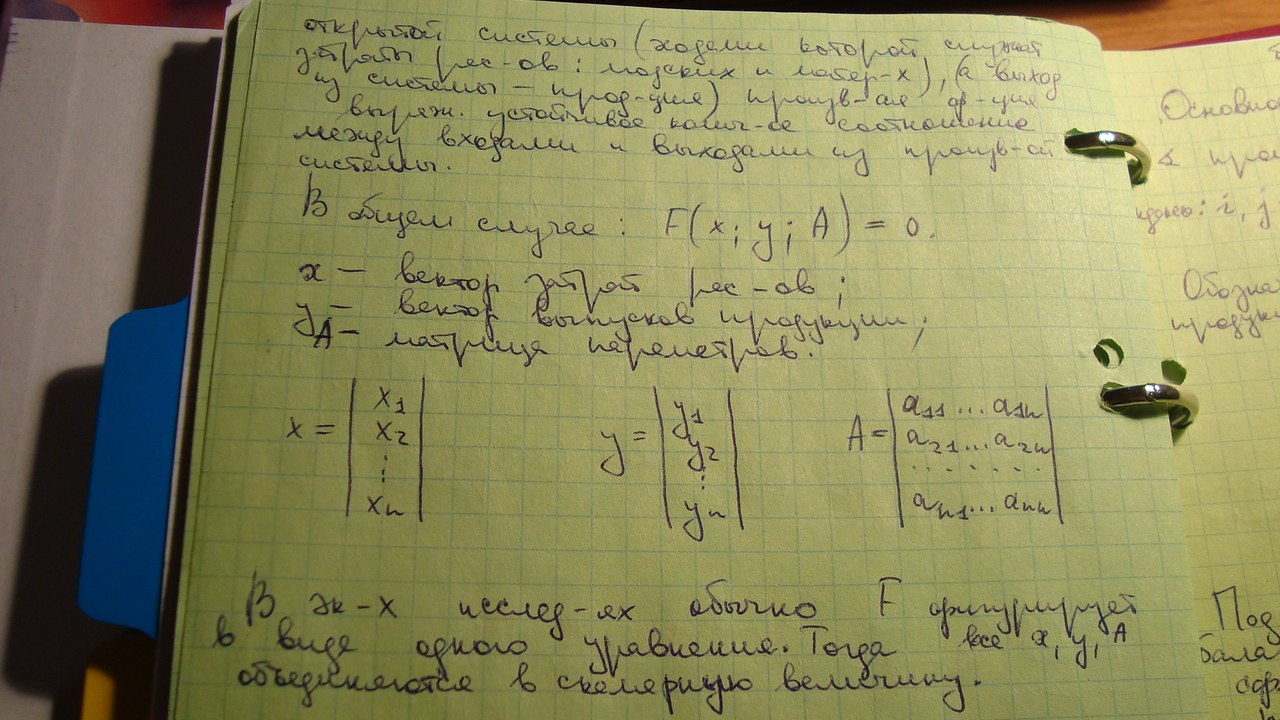 открытой системы (ходами которой служат
затраты рес-ов: людских и матер-х), (а выход
из системы – прод-ция) произв-ая ф-ция
выраж. устойчивое колич-ое соотношение
между входами и выходами из произв-ой
системы.
В общем случае: F(x; y; A) = 0.
x – вектор затрат рес-ов;
y – вектор выпусков продукции;
A – матрица параметров.
x = | x₁ x₂ ⋮ xₙ | y = | y₁ y₂ ⋮ yₙ | A = | a₁₁ ... a₁ₙ a₂₁ ... a₂ₙ ....... aₙ₁ ... aₙₙ |
В эк-х исслед-ях обычно F фигурирует
в виде одного уравнения. Тогда все x, y, A
объединяются в скалярную величину.
Основно
i, j
Обозна
продук
Под
бала